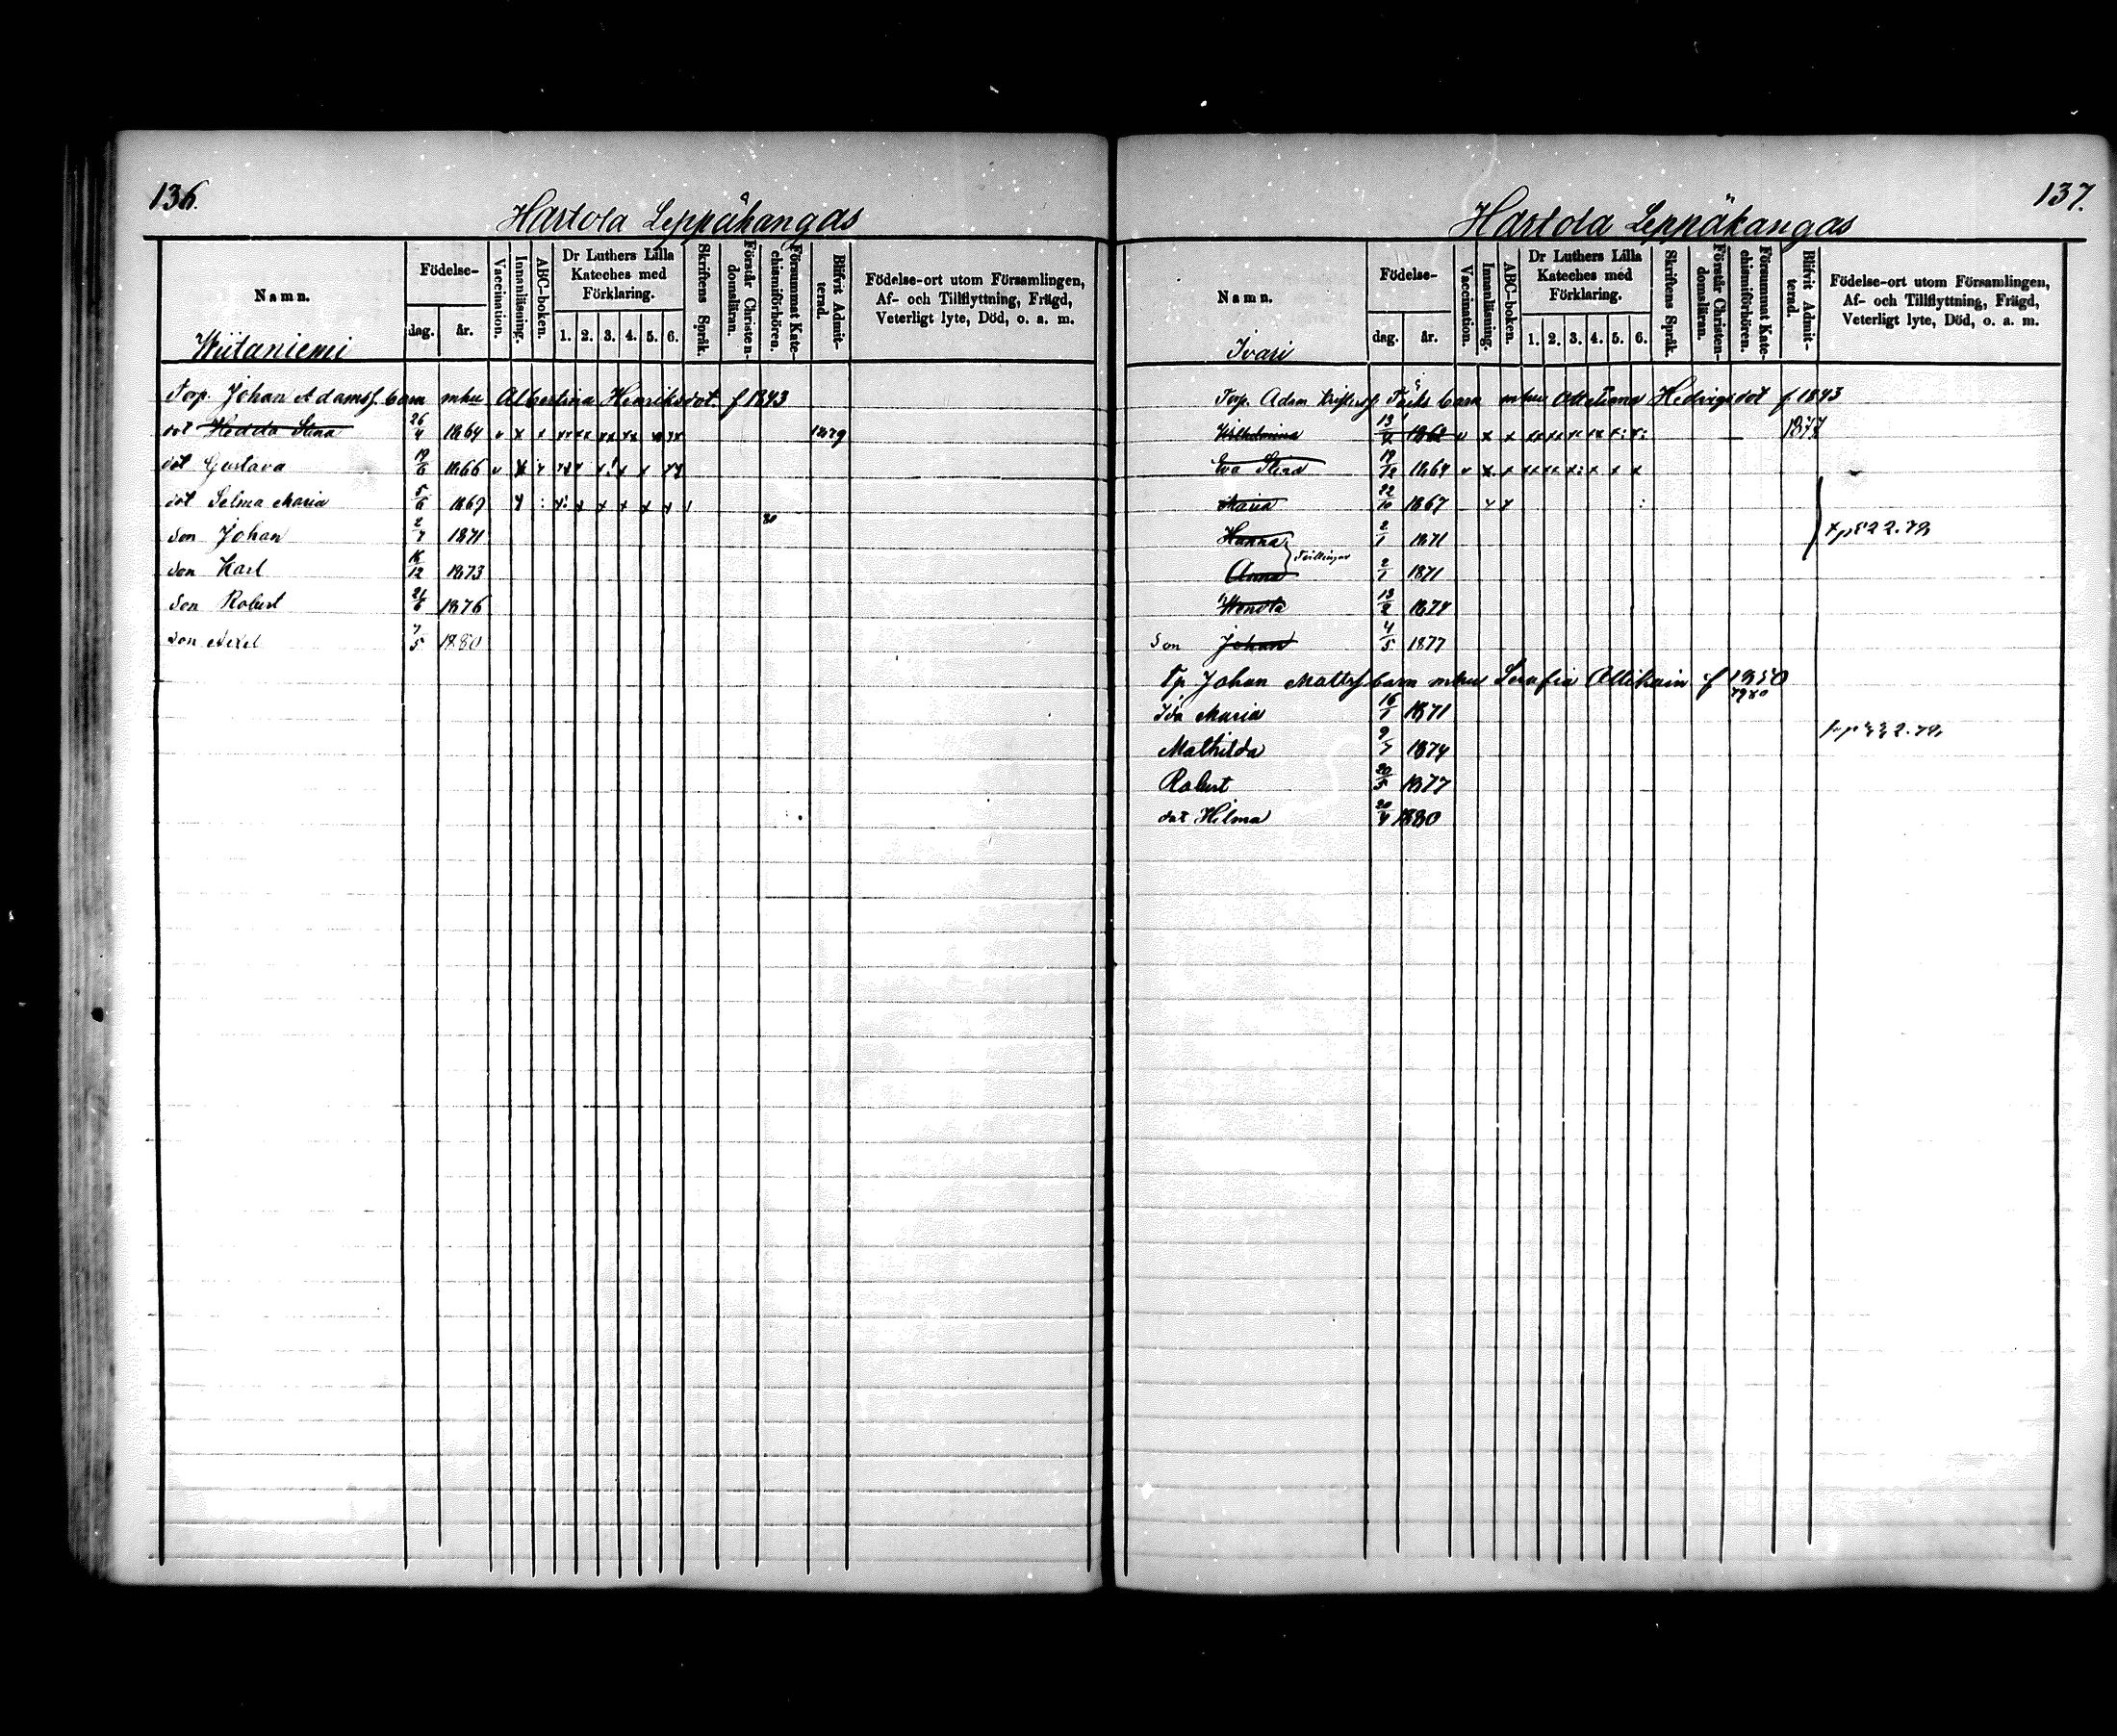 136.
Hartola Leppäkangas
Namn.
Födelse-
dag. år.
Vaccination.
Innanläsning.
ABC-boken.
Dr Luthers Lilla Kateches med Förklaring.
1. 2. 3. 4. 5. 6.
Skriftens Språk.
Förstår Christendomsläran.
Försummat Katechismiförhören.
Blifvit Admitterad.
Födelse-ort utom Församlingen,
Af- och Tillflyttning, Frägd,
Veterligt lyte, Död, o. a. m.
Wiitaniemi
Torp. Johan Adamss. barn mhu Albertina Henriksdot. f 1843
dot Hedda Stina 26/4 1864 v x x xx xx xx xx 1879
dot Gustava 19/6 1866 v x
dot Selma Maria 5/6 1869
80
son Johan 2/7 1871
son Karl 16/12 1873
son Robert 21/6 1876
son Axel 7/5 1880
137.
Hartola Leppäkangas
Namn.
Födelse-
dag. år.
Vaccination.
Innanläsning.
ABC-boken.
Dr Luthers Lilla Kateches med Förklaring.
1. 2. 3. 4. 5. 6.
Skriftens Språk.
Förstår Christendomsläran.
Försummat Katechismiförhören.
Blifvit Admitterad.
Födelse-ort utom Församlingen,
Af- och Tillflyttning, Frägd,
Veterligt lyte, Död, o. a. m.
Ivari
Torp. Adam barn mhu Hedvigsdot f 1843
Wilhelmina 1862 v x x 1877
Eva Stina 19/12 1864 v x x
Maria 22/10 1867
Hanna 2/1 1871
Tvillingar
Anna 2/1 1871
Wendla 13/2 1874
Son Johan 4/5 1877
Tp Johan Mattss barn mhu Serafia f 1850
Ida Maria 16/1 1871
Mathilda 9/7 1874
Robert 20/5 1877
dot Hilma 20/4 1880